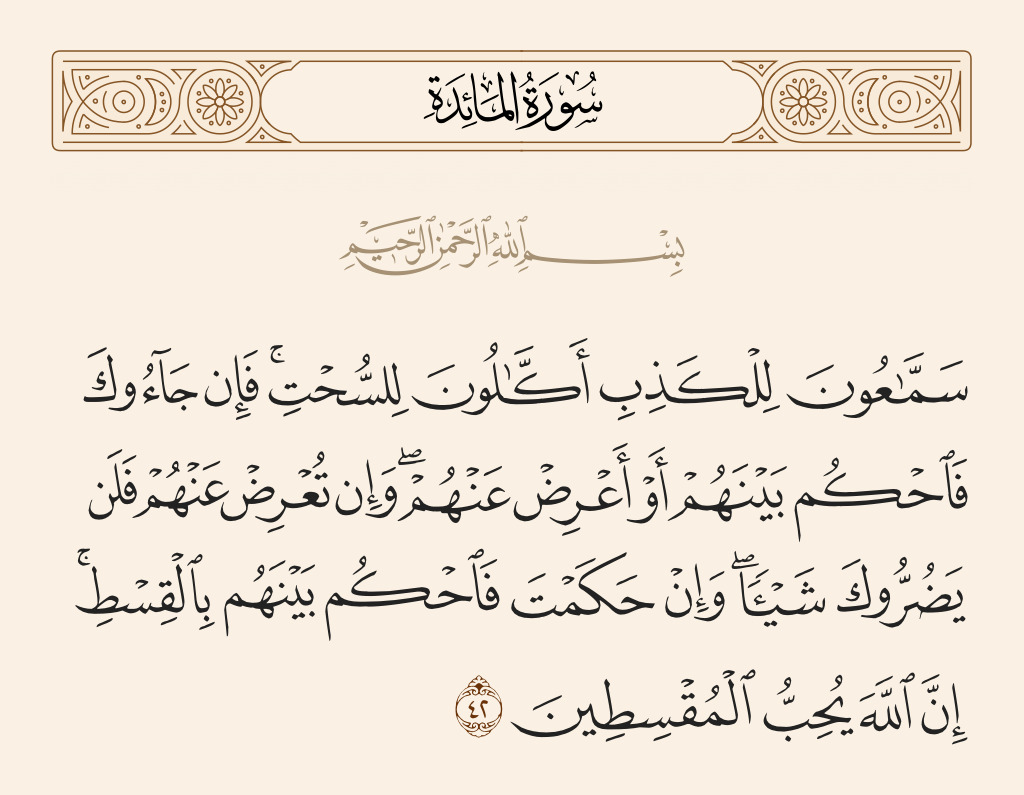 سُورَةُ المَائِدَةِ
بِسْمِ ٱللَّهِ ٱلرَّحْمَٰنِ ٱلرَّحِيمِ
سَمَّـٰعُونَ لِلْكَذِبِ أَكَّـٰلُونَ لِلسُّحْتِ ۚ فَإِن جَآءُوكَ
فَٱحْكُم بَيْنَهُمْ أَوْ أَعْرِضْ عَنْهُمْ ۖ وَإِن تُعْرِضْ عَنْهُمْ فَلَن
يَضُرُّوكَ شَيْـًٔا ۖ وَإِنْ حَكَمْتَ فَٱحْكُم بَيْنَهُم بِٱلْقِسْطِ ۚ
إِنَّ ٱللَّهَ يُحِبُّ ٱلْمُقْسِطِينَ ٤٢